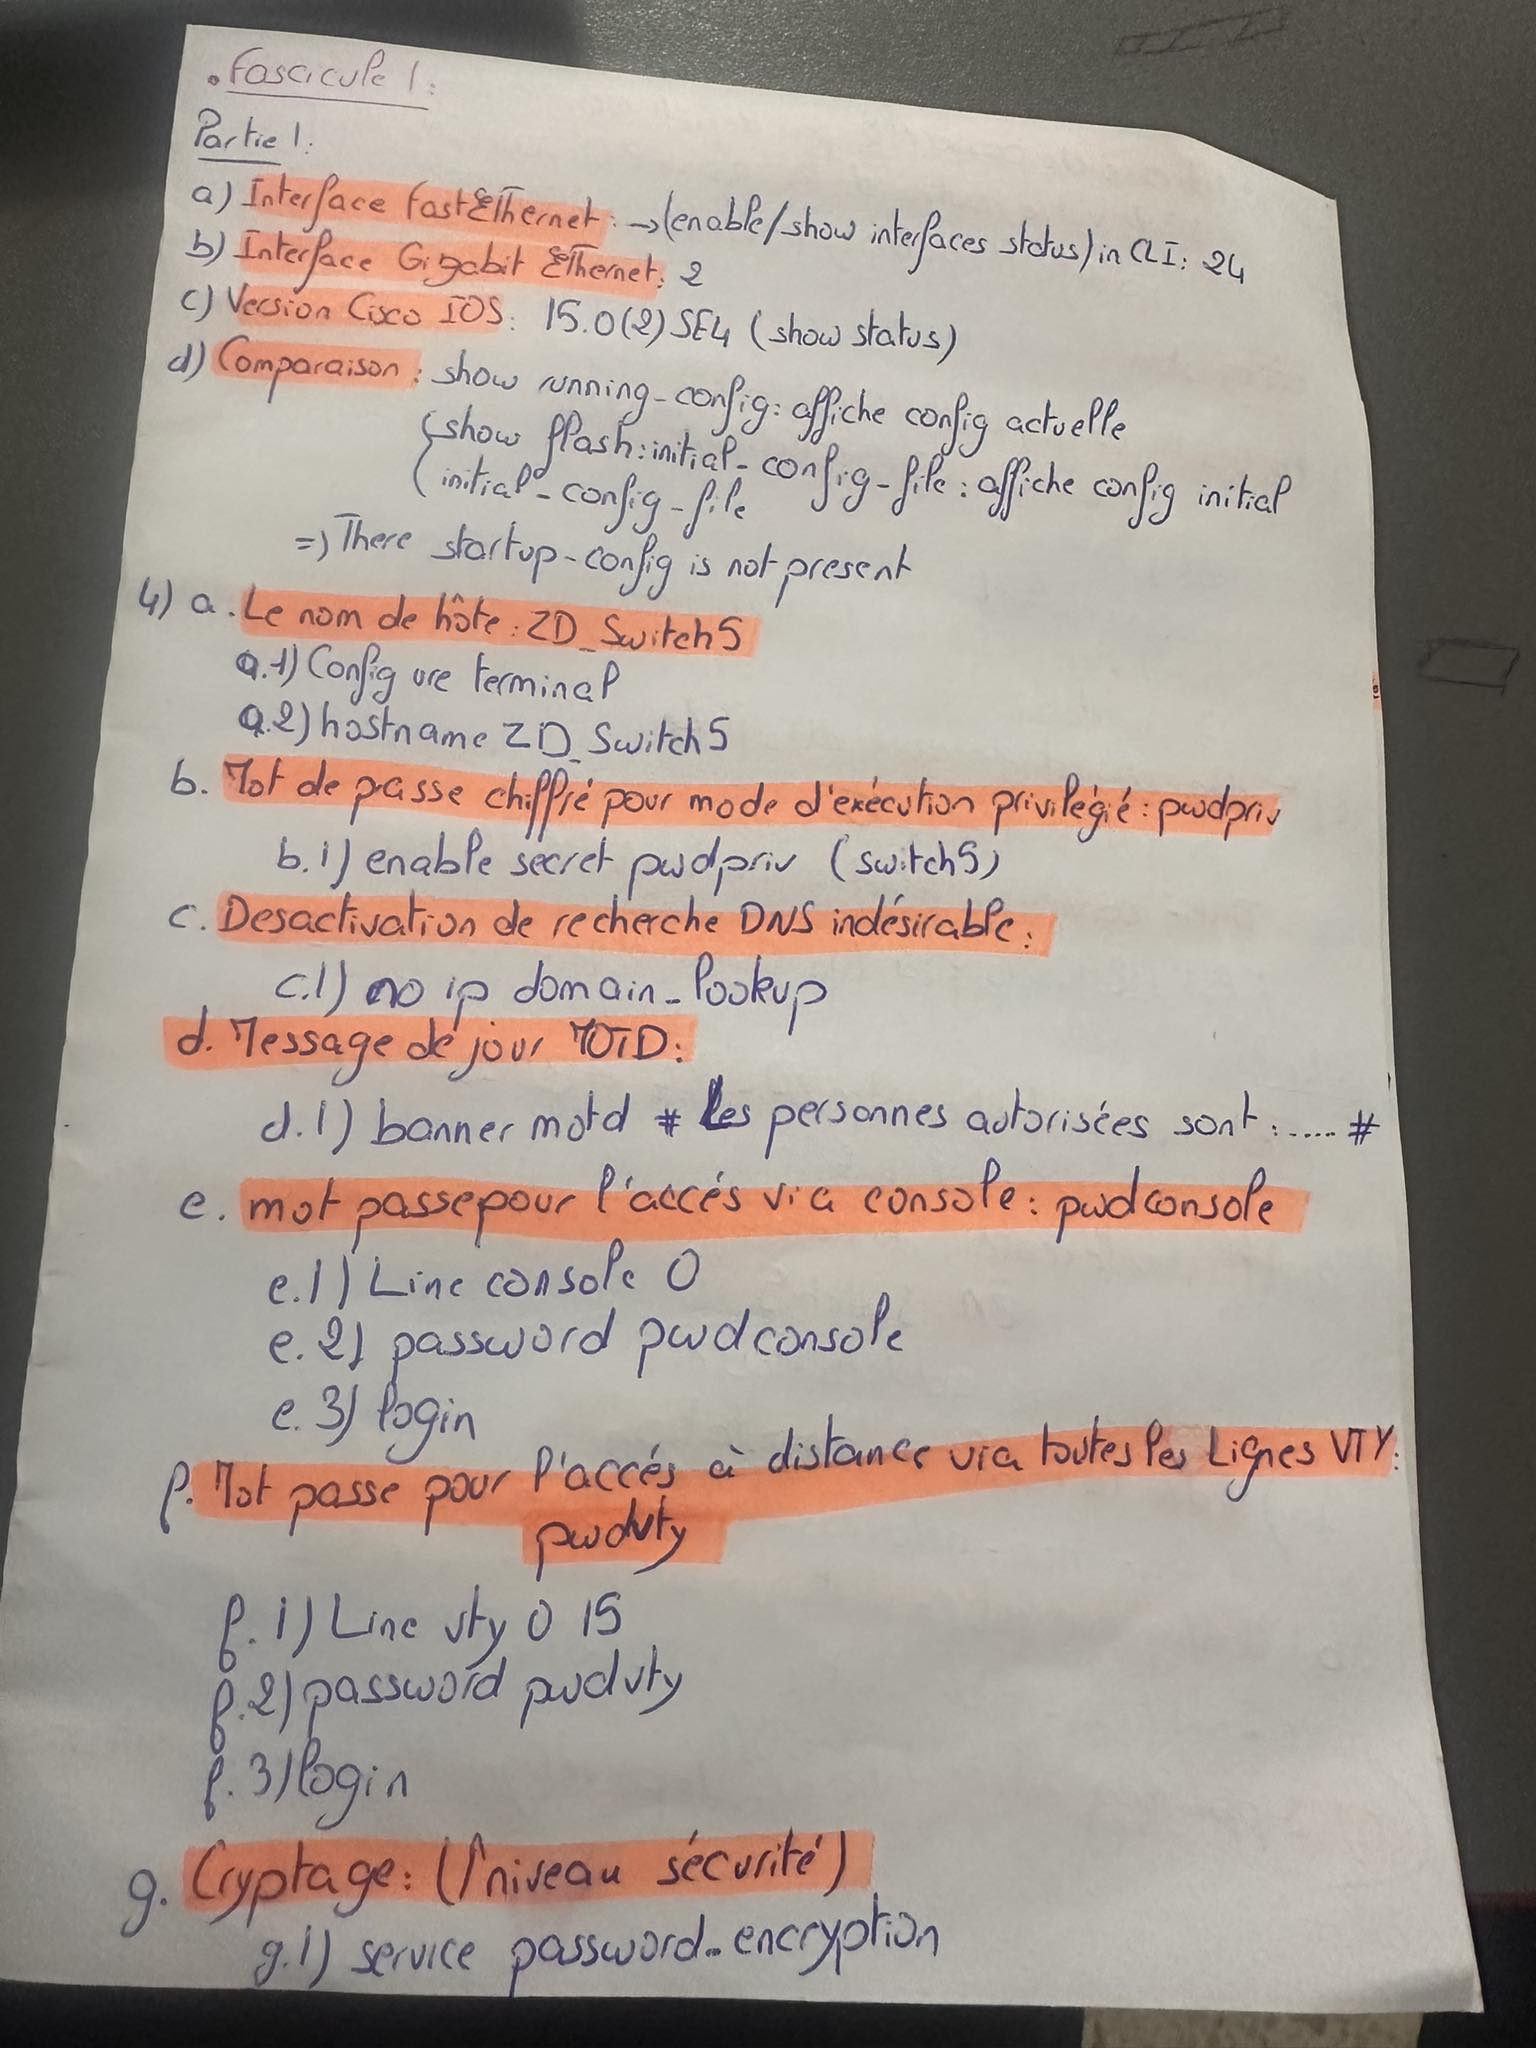 . Fascicule 1:
Partie 1:
a) Interface FastEthernet: → (enable/show interfaces status) in CLI: 24
b) Interface Gigabit Ethernet: 2
c) Version Cisco IOS: 15.0(2)SE4 (show status)
d) Comparaison: show running-config: affiche config actuelle
(show flash:initial-config-file: affiche config initial
(initial-config-file
=> There startup-config is not present
4) a. Le nom de hôte: ZD_Switch5
a.1) Configure terminal
a.2) hostname ZD_Switch5
b. Mot de passe chiffré pour mode d'exécution privilégié: pwdpriv
b.1) enable secret pwdpriv (switch5)
c. Desactivation de recherche DNS indésirable:
c.1) no ip domain-lookup
d. Message de jour MOTD:
d.1) banner motd # Les personnes autorisées sont:..... #
e. mot passe pour l'accés via console: pwdconsole
e.1) Line console 0
e.2) password pwdconsole
e.3) login
f. Mot passe pour l'accés à distance via toutes les Lignes VTY:
pwdvty
f.1) Line vty 0 15
f.2) password pwdvty
f.3) login
g. Cryptage: (↑niveau sécurité)
g.1) service password-encryption